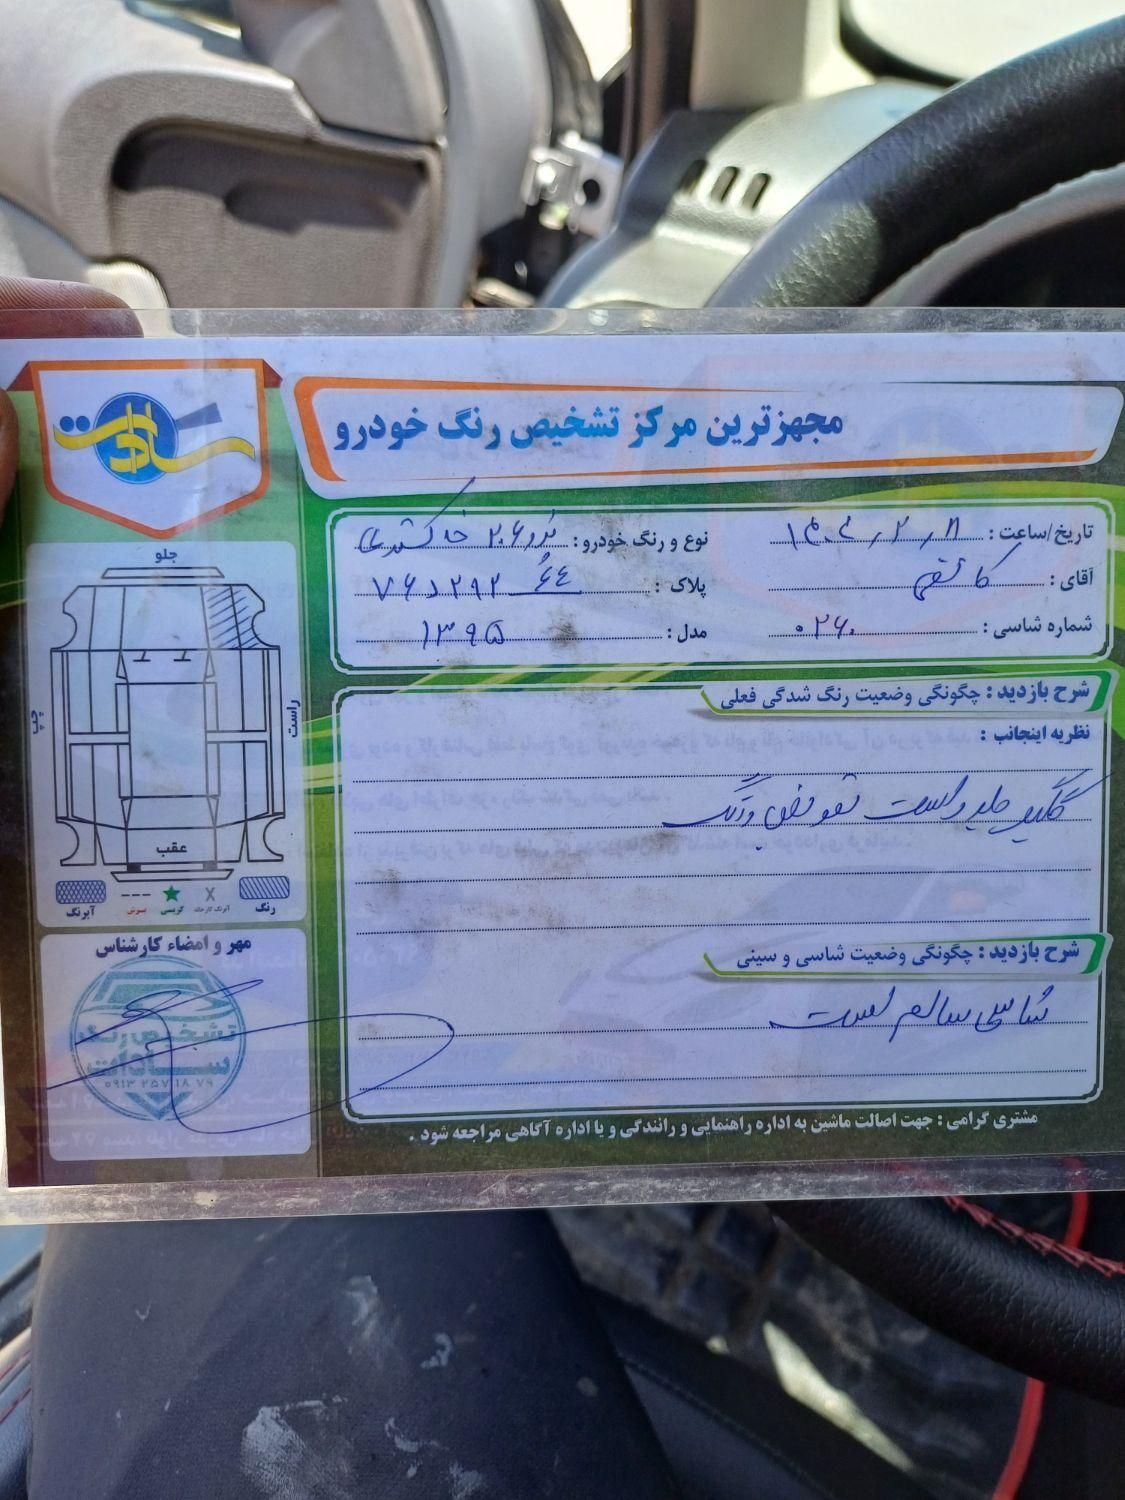 سادات
مجهزترین مرکز تشخیص رنگ خودرو
تاریخ/ساعت :
نوع و رنگ خودرو : پژو ۲۰۶ خاکستری
آقای :
پلاک :
شماره شاسی : ۰۲۶۰
مدل : ۱۳۹۵
شرح بازدید : چگونگی وضعیت رنگ شدگی فعلی
نظریه اینجانب :
گلگیر جلو راست تعویض ورنگ
شرح بازدید : چگونگی وضعیت شاسی و سینی
شاسی سالم است
جلو
چپ
راست
عقب
رنگ
آبرنگ کارخانه
گریسی
برش
آبرنگ
مهر و امضاء کارشناس
تشخیص رنگ
سادات
۰۹۱۳ ۲۵۷ ۱۸ ۷۹
مشتری گرامی : جهت اصالت ماشین به اداره راهنمایی و رانندگی و یا اداره آگاهی مراجعه شود .